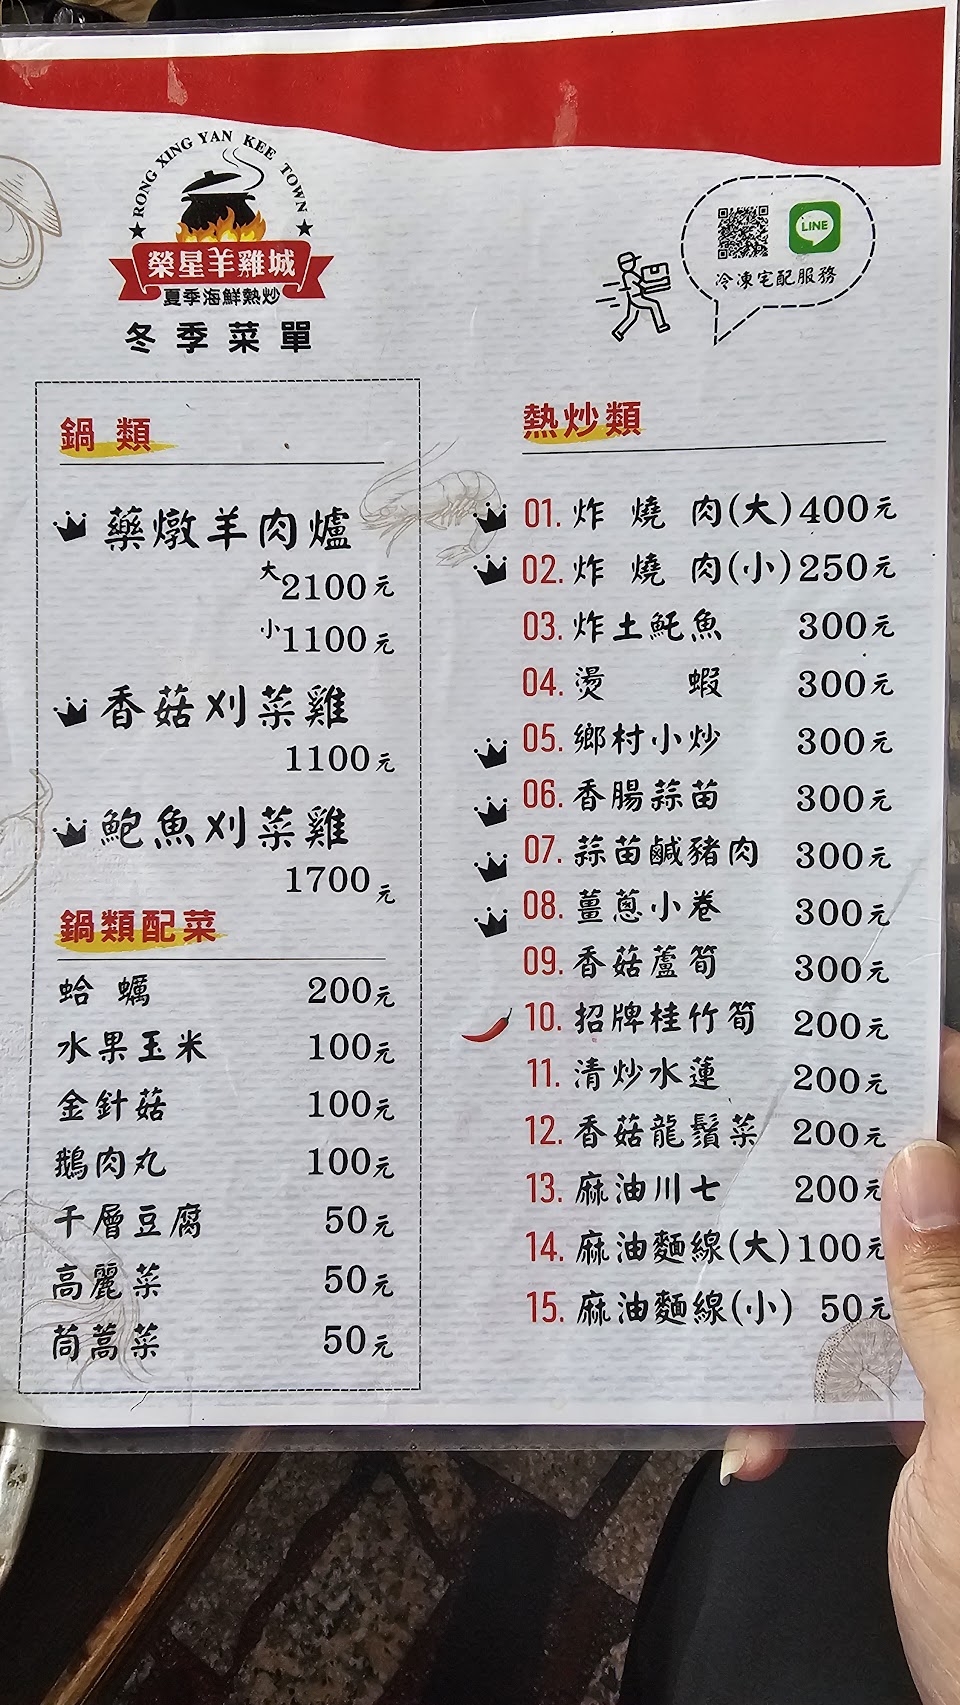 RONG XING YAN KEE TOWN
榮星羊雞城
夏季海鮮熱炒
冬季菜單
LINE
冷凍宅配服務
鍋類
藥燉羊肉爐
大2100元
小1100元
香菇刈菜雞
1100元
鮑魚刈菜雞
1700元
鍋類配菜
蛤蠣 200元
水果玉米 100元
金針菇 100元
鵝肉丸 100元
千層豆腐 50元
高麗菜 50元
茼蒿菜 50元
熱炒類
01. 炸燒肉(大) 400元
02. 炸燒肉(小) 250元
03. 炸土魠魚 300元
04. 燙蝦 300元
05. 鄉村小炒 300元
06. 香腸蒜苗 300元
07. 蒜苗鹹豬肉 300元
08. 薑蔥小卷 300元
09. 香菇蘆筍 300元
10. 招牌桂竹筍 200元
11. 清炒水蓮 200元
12. 香菇龍鬚菜 200元
13. 麻油川七 200元
14. 麻油麵線(大) 100元
15. 麻油麵線(小) 50元